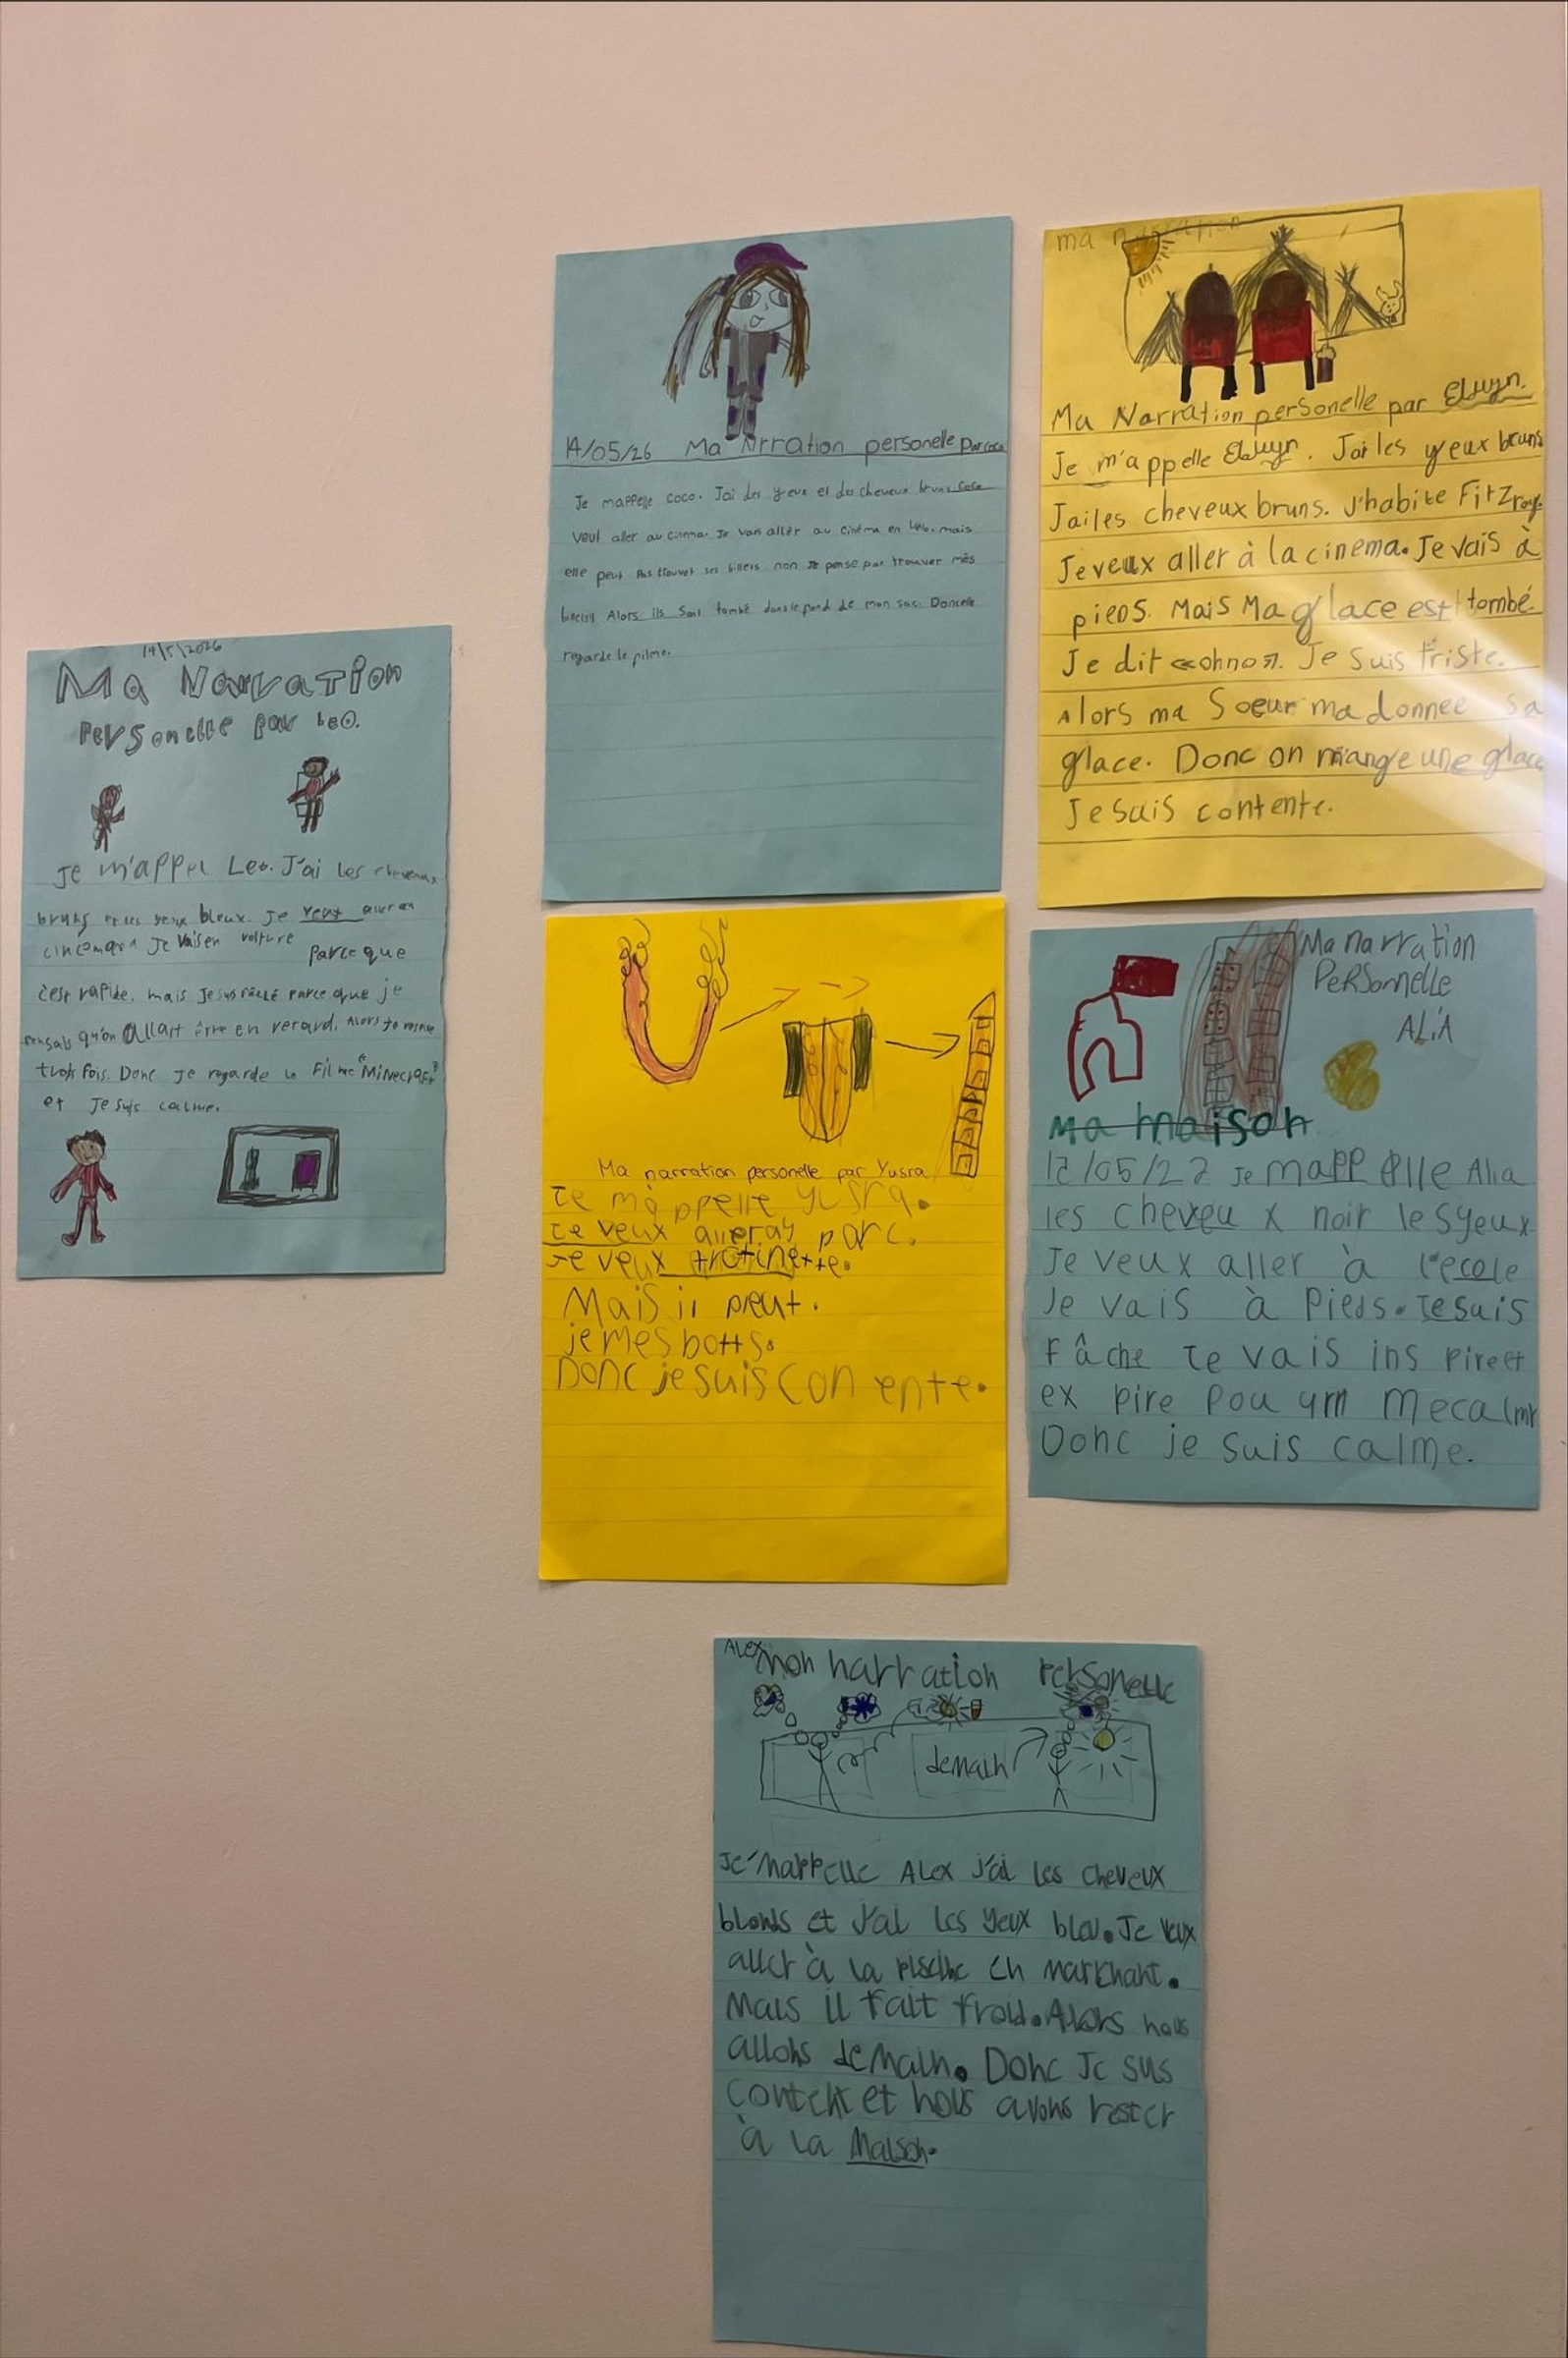 14/5/2026
Ma Narration
Personelle par Leo.
Je m'appel Leo. J'ai les cheveux
bruns et les yeux bleux. Je veut aller au
Je vais en voiture parce que
c'est rapide. mais Je suis faché parce que je
pensais qu'on allait être en retard. Alors je respire
trois fois. Donc je regarde le Filme "Minecraft"
et Je suis calme.
14/05/26 Ma Nrration personelle par coco
Je mappelle coco. Jai des yeux et des cheveux bruns coco
veut aller au cinema. Je vais aller au cinéma en mais
elle peut pas trouver ses billets non Je pense pas trouver mes
Alors ils sont tombé dans le fond de mon sac. Doncelle
regarde le filme.
ma narration
Ma Narration personelle par Elwyn.
Je m'appelle Elwyn. Jai les yeux bruns
Jai les cheveux bruns. J'habite Fitzroy.
Je veux aller à la cinema. Je vais à
pieds. Mais Ma glace est tombé.
Je dit «ohno». Je suis triste.
Alors ma Soeur ma donnee sa
glace. Donc on mange une glace
Je suis contente.
Ma narration personelle par Yusra
Je m'appelle Yusra.
Je veux aller au parc.
Je veux trotinette.
Mais il pleut.
je mes botts.
Donc je suis con ente.
Ma narration
Personnelle
ALIA
Ma maison
12/05/22 Je mapp elle Alia
les cheveu x noir les yeux
Je veux aller à l'ecole
Je vais à Pieds. Je suis
Fâche Je vais ins pire et
ex pire Pou urn me calmr
Donc je suis calme.
ALEX
mon narration Personelle
demain
Je'mappelle ALex j'ai les cheveux
blonds et J'ai les yeux bleu. Je veux
aller à la piscine en marchant.
Mais il fait froid. Alors nous
allons demain. Donc Je sus
content et nous avons rester
à la Maison.